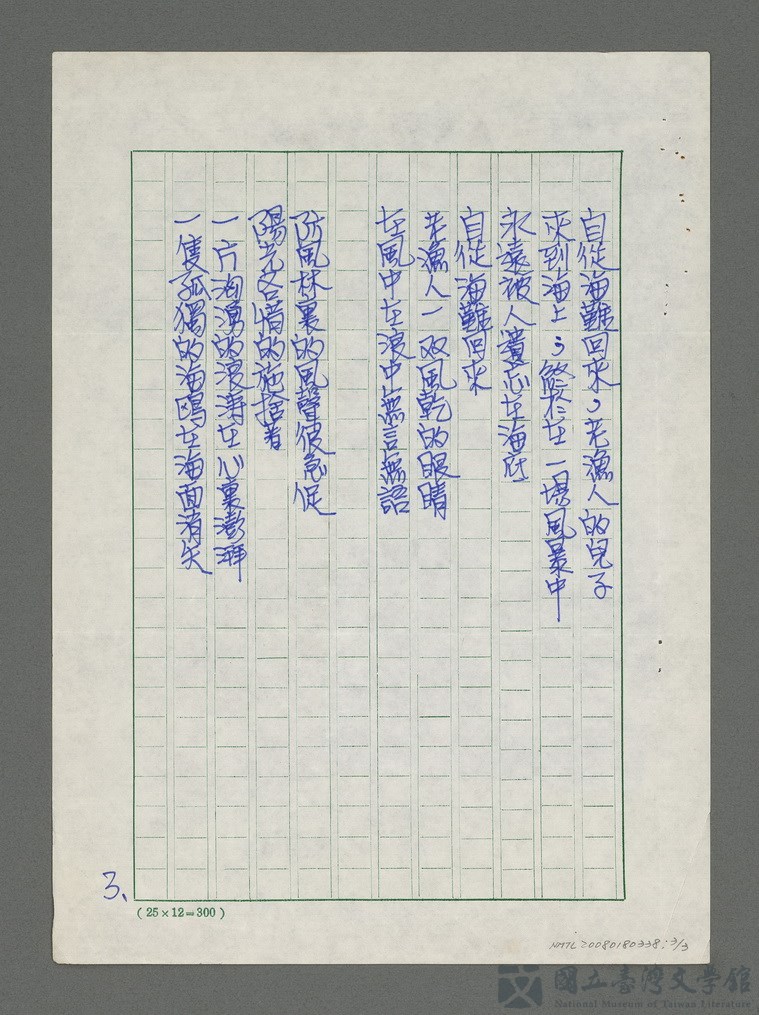 自從海難回來，老漁人的兒子
來到海上，終於在一場風暴中
永遠被人遺忘在海底
自從海難回來
老漁人一双風乾的眼睛
在風中在浪中無言無語
防風林裏的風聲很急促
陽光吝惜的施捨著
一片洶湧的浪濤在心裏澎湃
一隻孤獨的海鷗在海面消失
3、
(25×12=300)
NMTL 20080180338:3/3
國立臺灣文學館
National Museum of Taiwan Literature